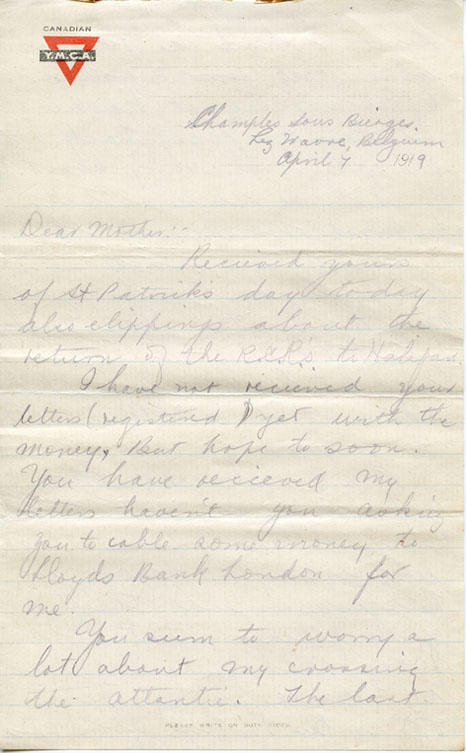 CANADIAN
Y.M.C.A.
Champles Sous Bierges,
Lez Wavre, Belguim
April 7 1919
Dear Mother:-
Recieved yours
of St Patrick's day to-day
also clippings about the
return of the R.C.R's to Halifax.
I have not recieved your
letters (registered) yet with the
money, But hope to soon.
You have recieved my
letters haven't you asking
you to cable some money to
Lloyds Bank London for
me.
You seem to worry a
lot about my crossing
the atlantic. The last
PLEASE WRITE ON BOTH SIDES